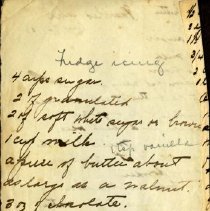 Fudge icing
4 cups sugar.
2 of granulated
2 of soft white sugar or brown
1 cup milk
1 tsp vanilla
a piece of butter about
as large as a walnut.
3 oz chocolate.